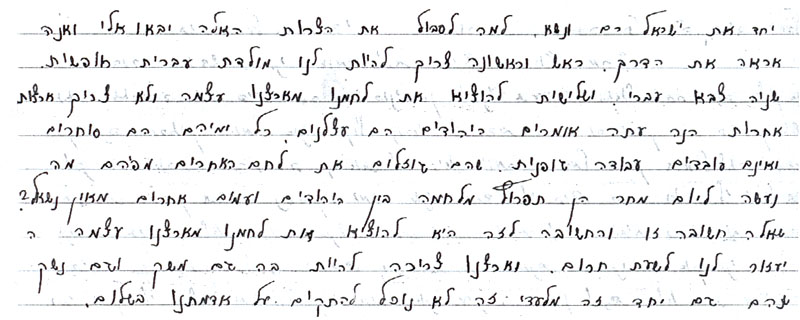 יחד את ישראל רם ונשא. למה לסבול את הצרות האלה יבאו אלי ואנה
אראה את הדרך. ראש וראשונה צריך להיות לנו מולדת עברית חופשית.
שניה צבא עברי. ושלישית להוציא את לחמנו מארצנו עצמה ולא צריך ארצות
אחרות הנה עתה אומרים היהודים הם עצלנים, כל ימיהם הם סוחרים
ואינם עובדים עבודה גופנית. שהם גוזלים את לחם האחרים מפיהם מה
נעשה ליום מחר הן תפרוץ מלחמה בין היהודים ועמים אחרים מאין נשאל?
שאלה חשובה זו והחשובה לזה היא להוציא את לחמנו מארצנו עצמה ה
יעזור לנו לשעת חרום. וארצנו צריכה להיות בה גם משק וגם נשק
שהם גם יחד זה מלעדי זה לא נוכל להתקים על אדמתנו בשלום.